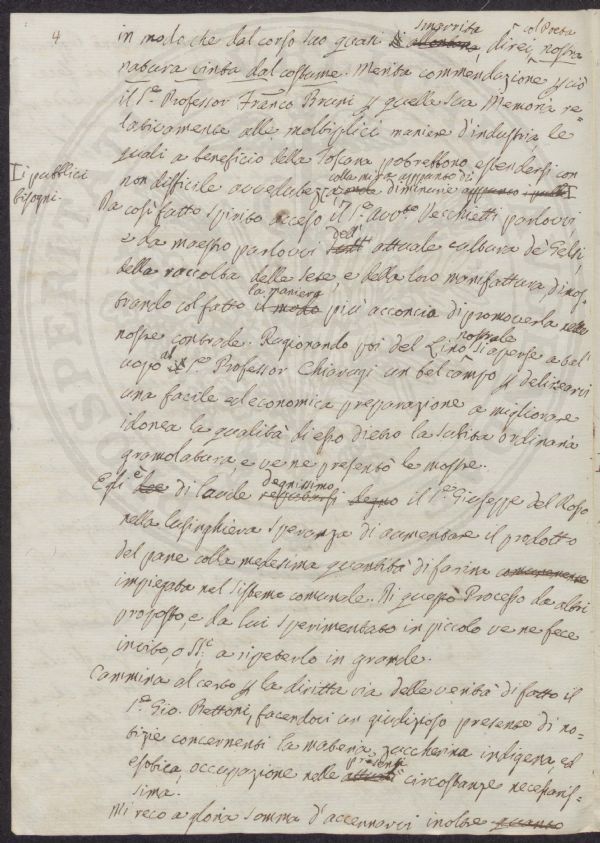 4
in modo che dal corso suo quasi smarrita, direi col Poeta, nostra
natura vinta dal costume. Merita commendazione p ciò
il Sig.e Professor Franco Bruni p quella sua Memoria re=
lativamente alle moltiplici maniere d'industria, le
quali a beneficio della Toscana potrebbono estendersi con
non difficile avvedutezza colla mira appunto di diminuire
I i pubblici
bisogni.
Da così fatto spirito acceso il Sig.e Avv.to Vecchietti parlovvi
e da maestro parlovvi dell' attuale cultura de' Gelsi,
della raccolta delle Sete, e della loro manifattura, dimos=
trando col fatto la maniera più acconcia di promoverla nelle
nostre contrade. Ragionando poi del Lino nostrale s'aperse a tal'
uopo al Sig.e Professor Chiarugi un bel campo p delinearvi
una facile ed economica preparazione a migliorare
idonea la qualità di esso dietro la solita ordinaria
gramolatura, e ve ne presentò le mostre.
Egli è di laude degnissimo il Sig.e Giuseppe del Rosso
nella lusinghiera speranza di aumentare il prodotto
del pane colla medesima quantità di farina comunemente
impiegata nel sistema comunale. Di questo Processo da altri
proposto, e da lui sperimentato in piccolo ve ne fece
invito, o SS.ri a ripeterlo in grande.
Cammina al certo p la diritta via delle verità di fatto il
Sig.e Gio. Bettoni, facendovi un giudizioso presente di no=
tizie concernenti la materia zuccherina indigena, ed
esotica, occupazione nelle presenti circostanze necessaris=
sima.
Mi reco a gloria somma d'accennarvi inoltre quanto